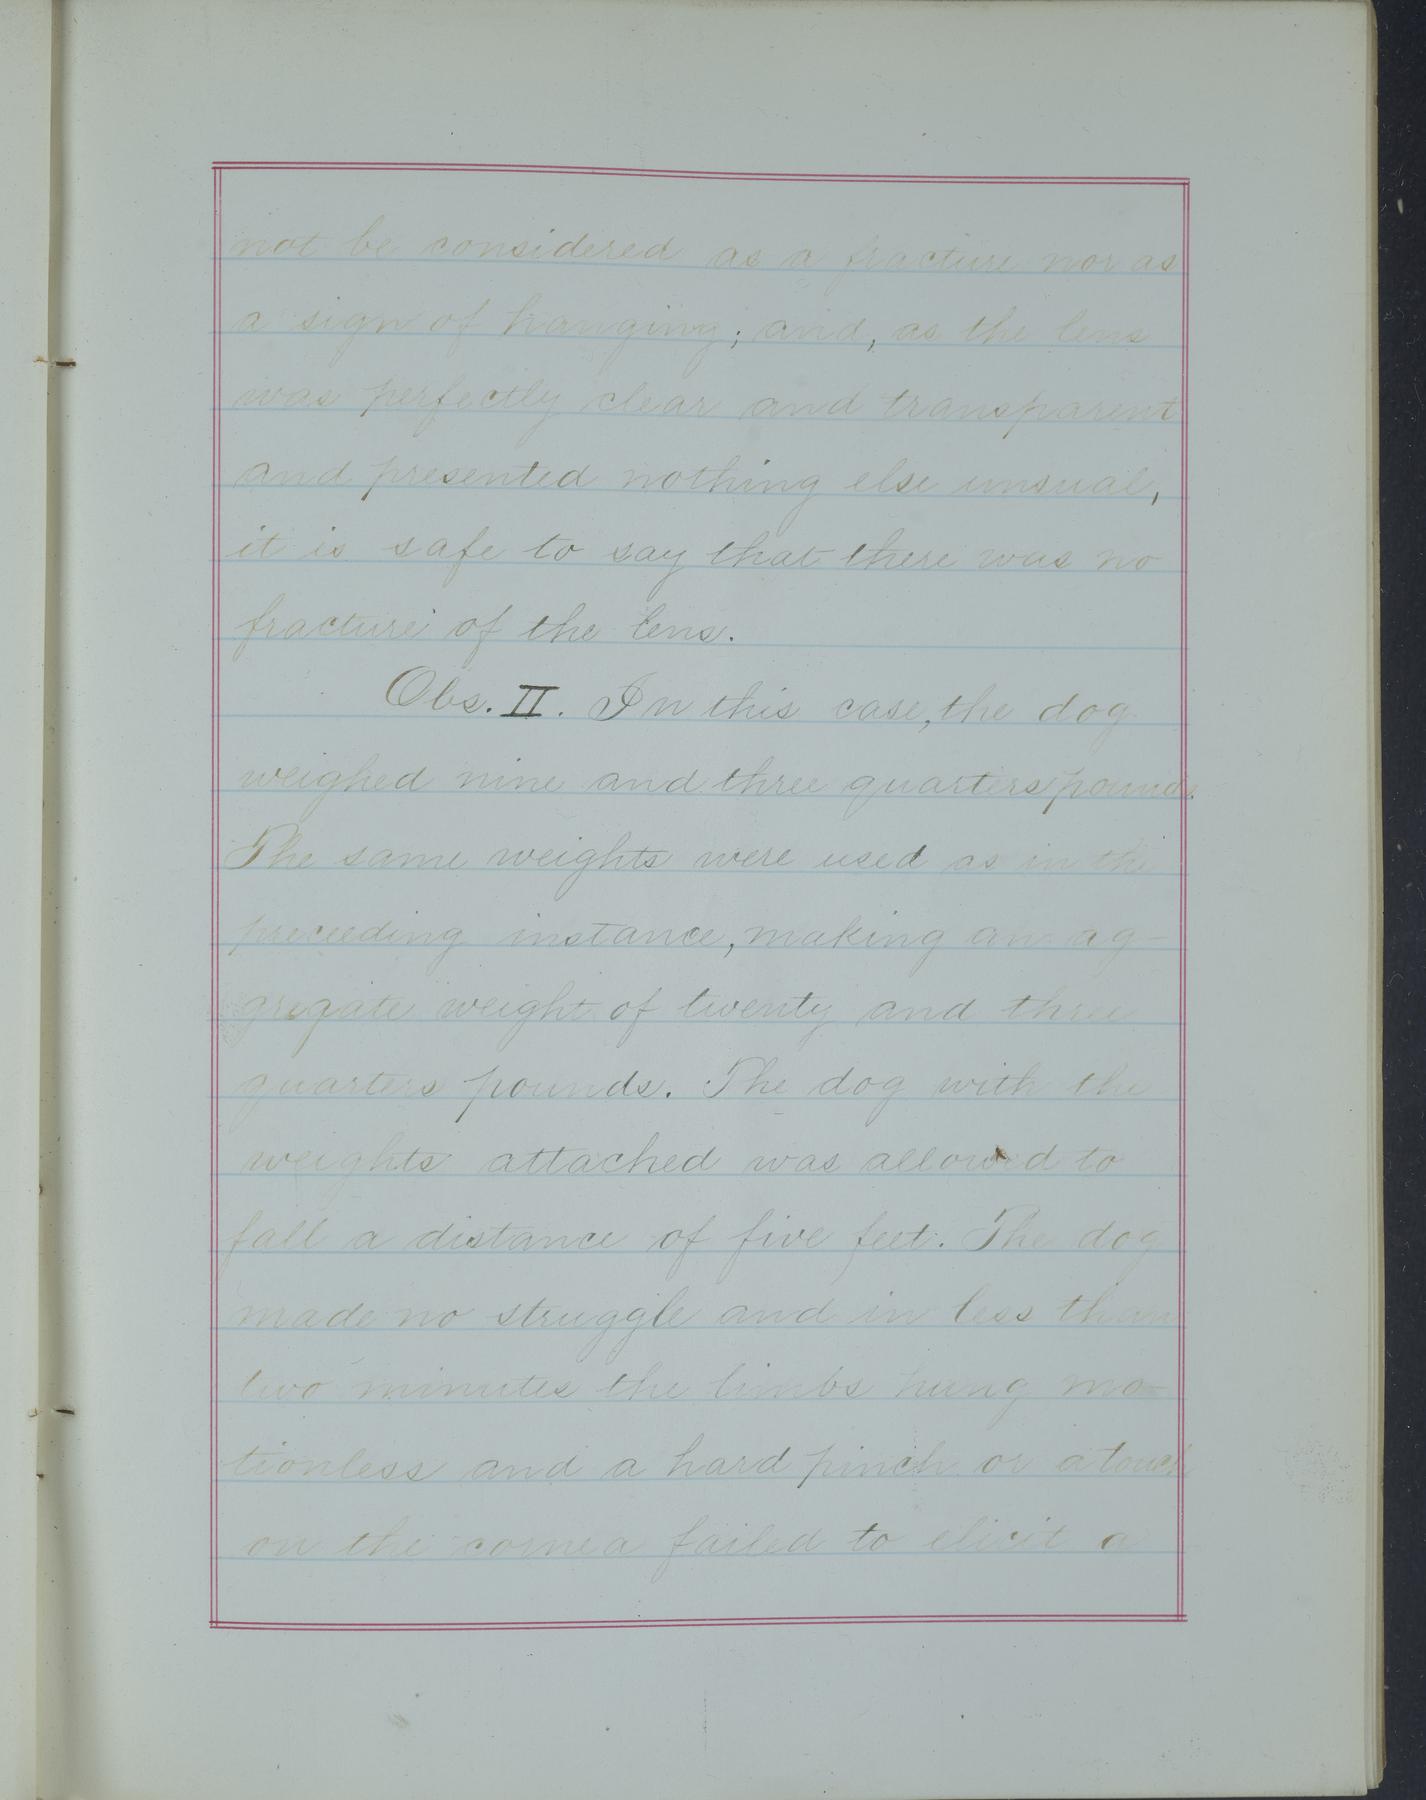 not be considered as a fracture nor as
a sign of hanging; and, as the lens
was perfectly clear and transparent
and presented nothing else unsual,
it is safe to say that there was no
fracture of the lens.
Obs. II. In this case, the dog
weighed nine and three quarters pounds.
The same weights were used as in the
preceeding instance, making an ag-
gregate weight of twenty and three
quarters pounds. The dog with the
weights attached was allowed to
fall a distance of five feet. The dog
made no struggle and in less than
two minutes the limbs hung mo-
tionless and a hard pinch or a touch
on the cornea failed to elicit a